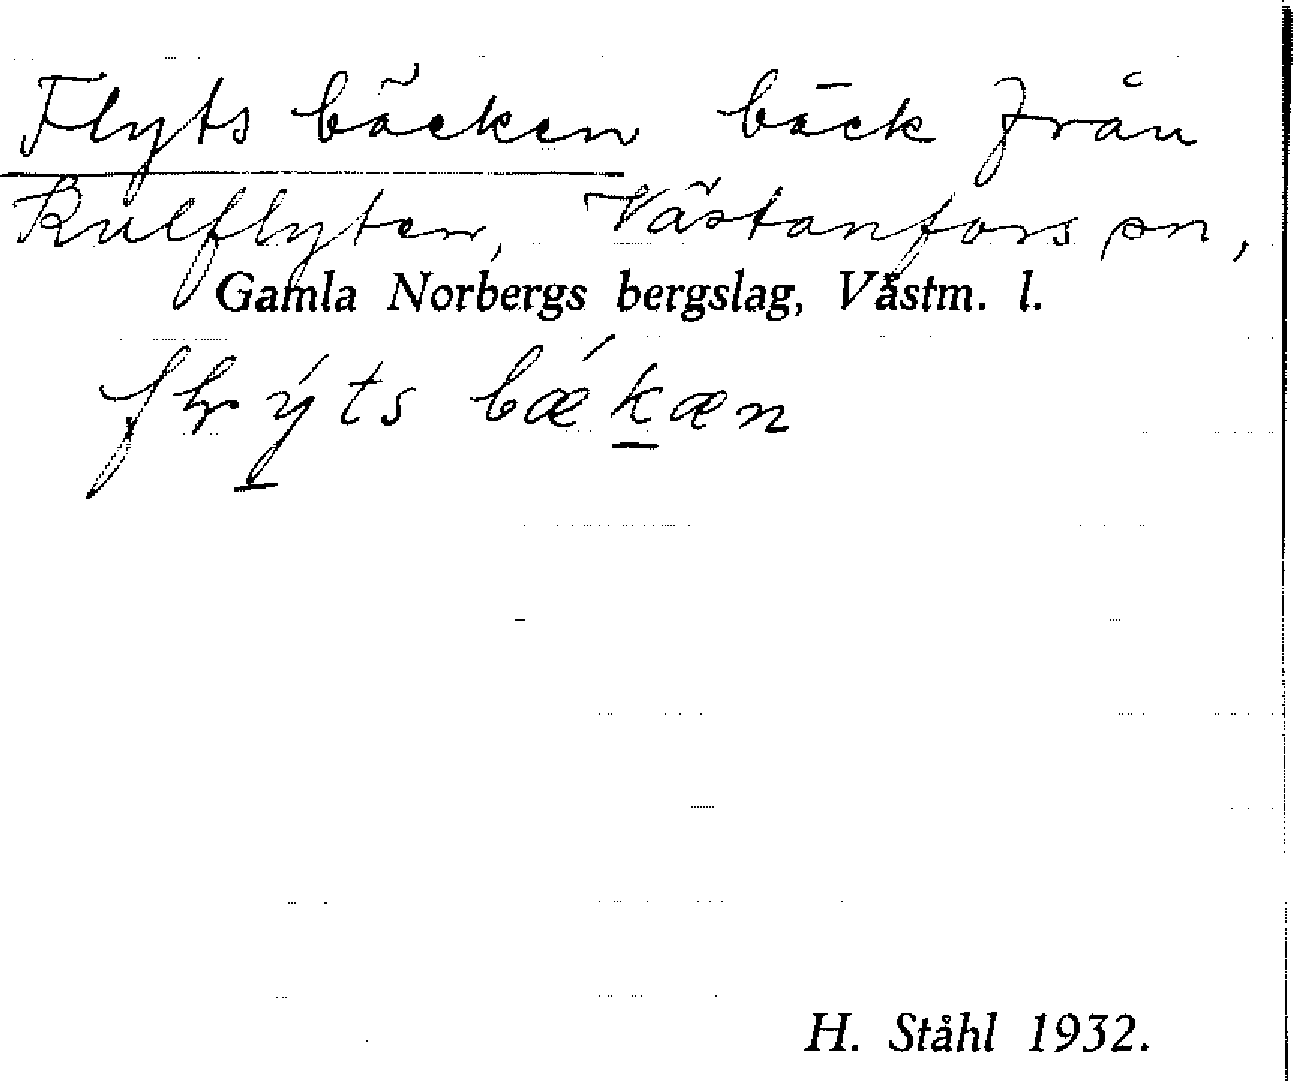 Flytsbäcken bäck från
Kulflyten, Västanfors sn,
Gamla Norbergs bergslag, Västm. l.
flýts bǽkæn
H. Ståhl 1932.